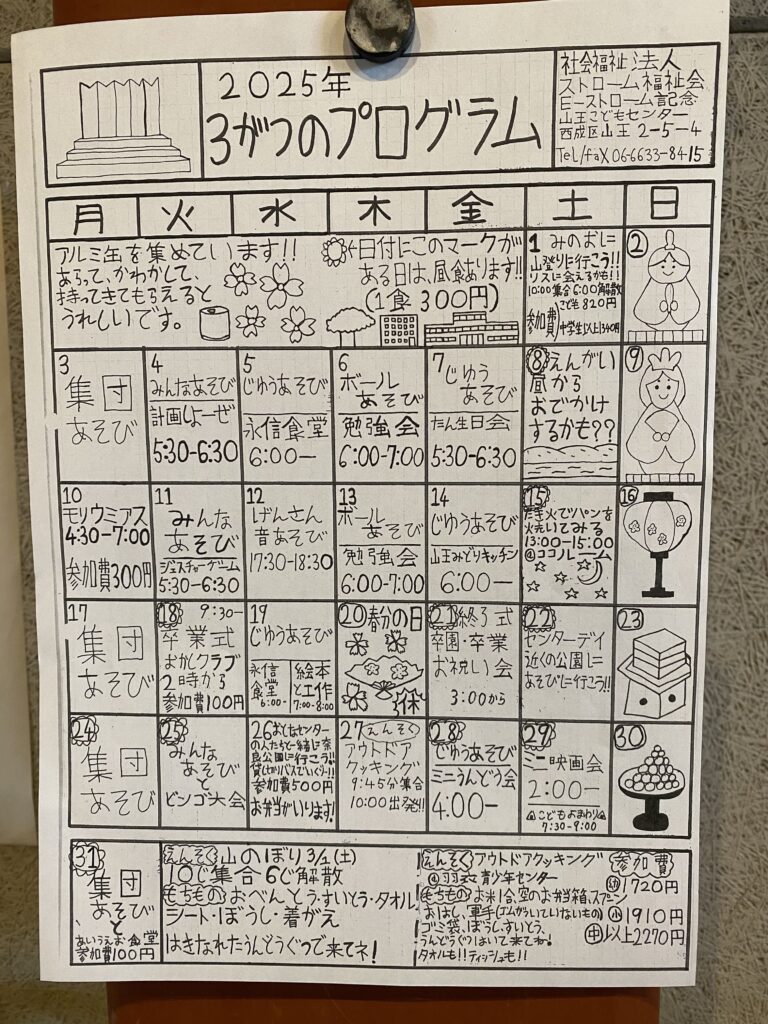 2025年
3がつのプログラム
社会福祉法人
ストローム福祉会
E-ストローム記念
山王こどもセンター
西成区山王 2-5-4
Tel/fax 06-6633-8415
月 火 水 木 金 土 日
アルミ缶を集めています!!
あらって、かわかして、
持ってきてもらえると
うれしいです。
←日付にこのマークが
ある日は、昼食あります!!
(1食 300円)
1 みのおに
山登りに行こう!!
リスに会えるかも!!
10:00集合 6:00解散
参加費
こども 820円
中学生以上1340円
2
3
集団
あそび
4
みんなあそび
計画しよーぜ
5:30-6:30
5
じゆうあそび
永信食堂
6:00ー
6
ボール
あそび
勉強会
6:00-7:00
7 じゆう
あそび
たん生日会
5:30-6:30
8 えんがい
昼から
おでかけ
するかも??
9
10
モリウミアス
4:30-7:00
参加費300円
11
みんな
あそび
ジェスチャーゲーム
5:30-6:30
12
げんさん
音あそび
17:30-18:30
13
ボール
あそび
勉強会
6:00-7:00
14
じゆうあそび
山王みどりキッチン
6:00ー
15
たき火でパンを
焼いてみる
13:00-15:00
ココルーム
16
17
集団
あそび
18 9:30-
卒業式
おかしクラブ
2時から
参加費100円
19
じゆうあそび
永信
食堂
6:00-
絵本
と工作
7:00-8:00
20 春分の日
休
21 終了式
卒園・卒業
お祝い会
3:00から
22
センターデイ
近くの公園に
あそびに行こう!!
23
24
集団
あそび
25
みんな
あそび
と
ビンゴ大会
26 おとなセンター
の人たちと一緒に奈
良公園に行こう!!
貸し切りバスでいくヨー!!
参加費500円
お弁当がいります!
27 えんそく
アウトドア
クッキング
9:45分集合
10:00出発!!
28
じゆうあそび
ミニうんどう会
4:00ー
29
ミニ映画会
2:00ー
こどもよまわり
7:30-9:00
30
31
集団
あそび
と
あいうえお食堂
参加費100円
えんそく 山のぼり 3/1(土)
10じ集合 6じ解散
もちもの おべんとう・すいとう・タオル
シート・ぼうし・着がえ
はきなれたうんどうぐつで来てネ!
えんそく アウトドアクッキング
青少年センター
もちもの お米1合、空のお弁当箱、スプーン
おはし、軍手(ゴムがついていないもの)
ゴミ袋、ぼうし、すいとう、
うんどうぐつはいて来てね!
タオルも!!ティッシュも!!
参加費
幼 1720円
小 1910円
中以上2270円